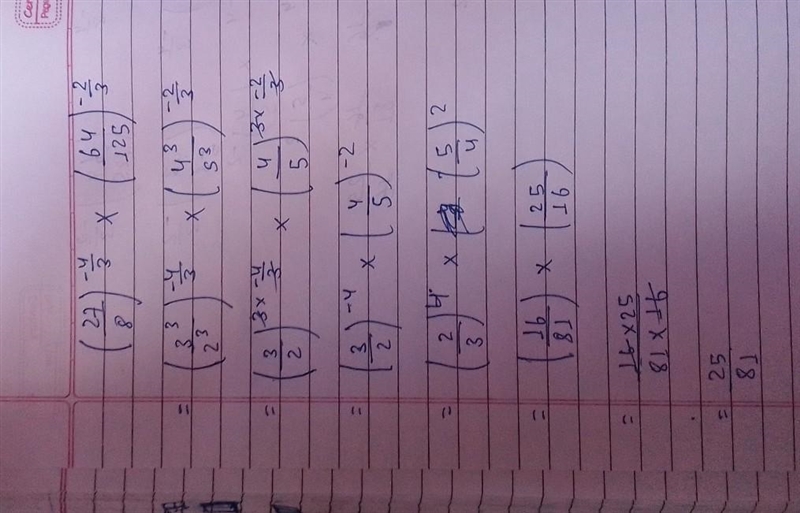 (27/8)^(-4/3) × (64/125)^(-2/3)
= (3^3/2^3)^(-4/3) × (4^3/5^3)^(-2/3)
= (3/2)^(3×-4/3) × (4/5)^(3×-2/3)
= (3/2)^(-4) × (4/5)^(-2)
= (2/3)^4 × (5/4)^2
= (16/81) × (25/16)
= 16×25/81×16
= 25/81